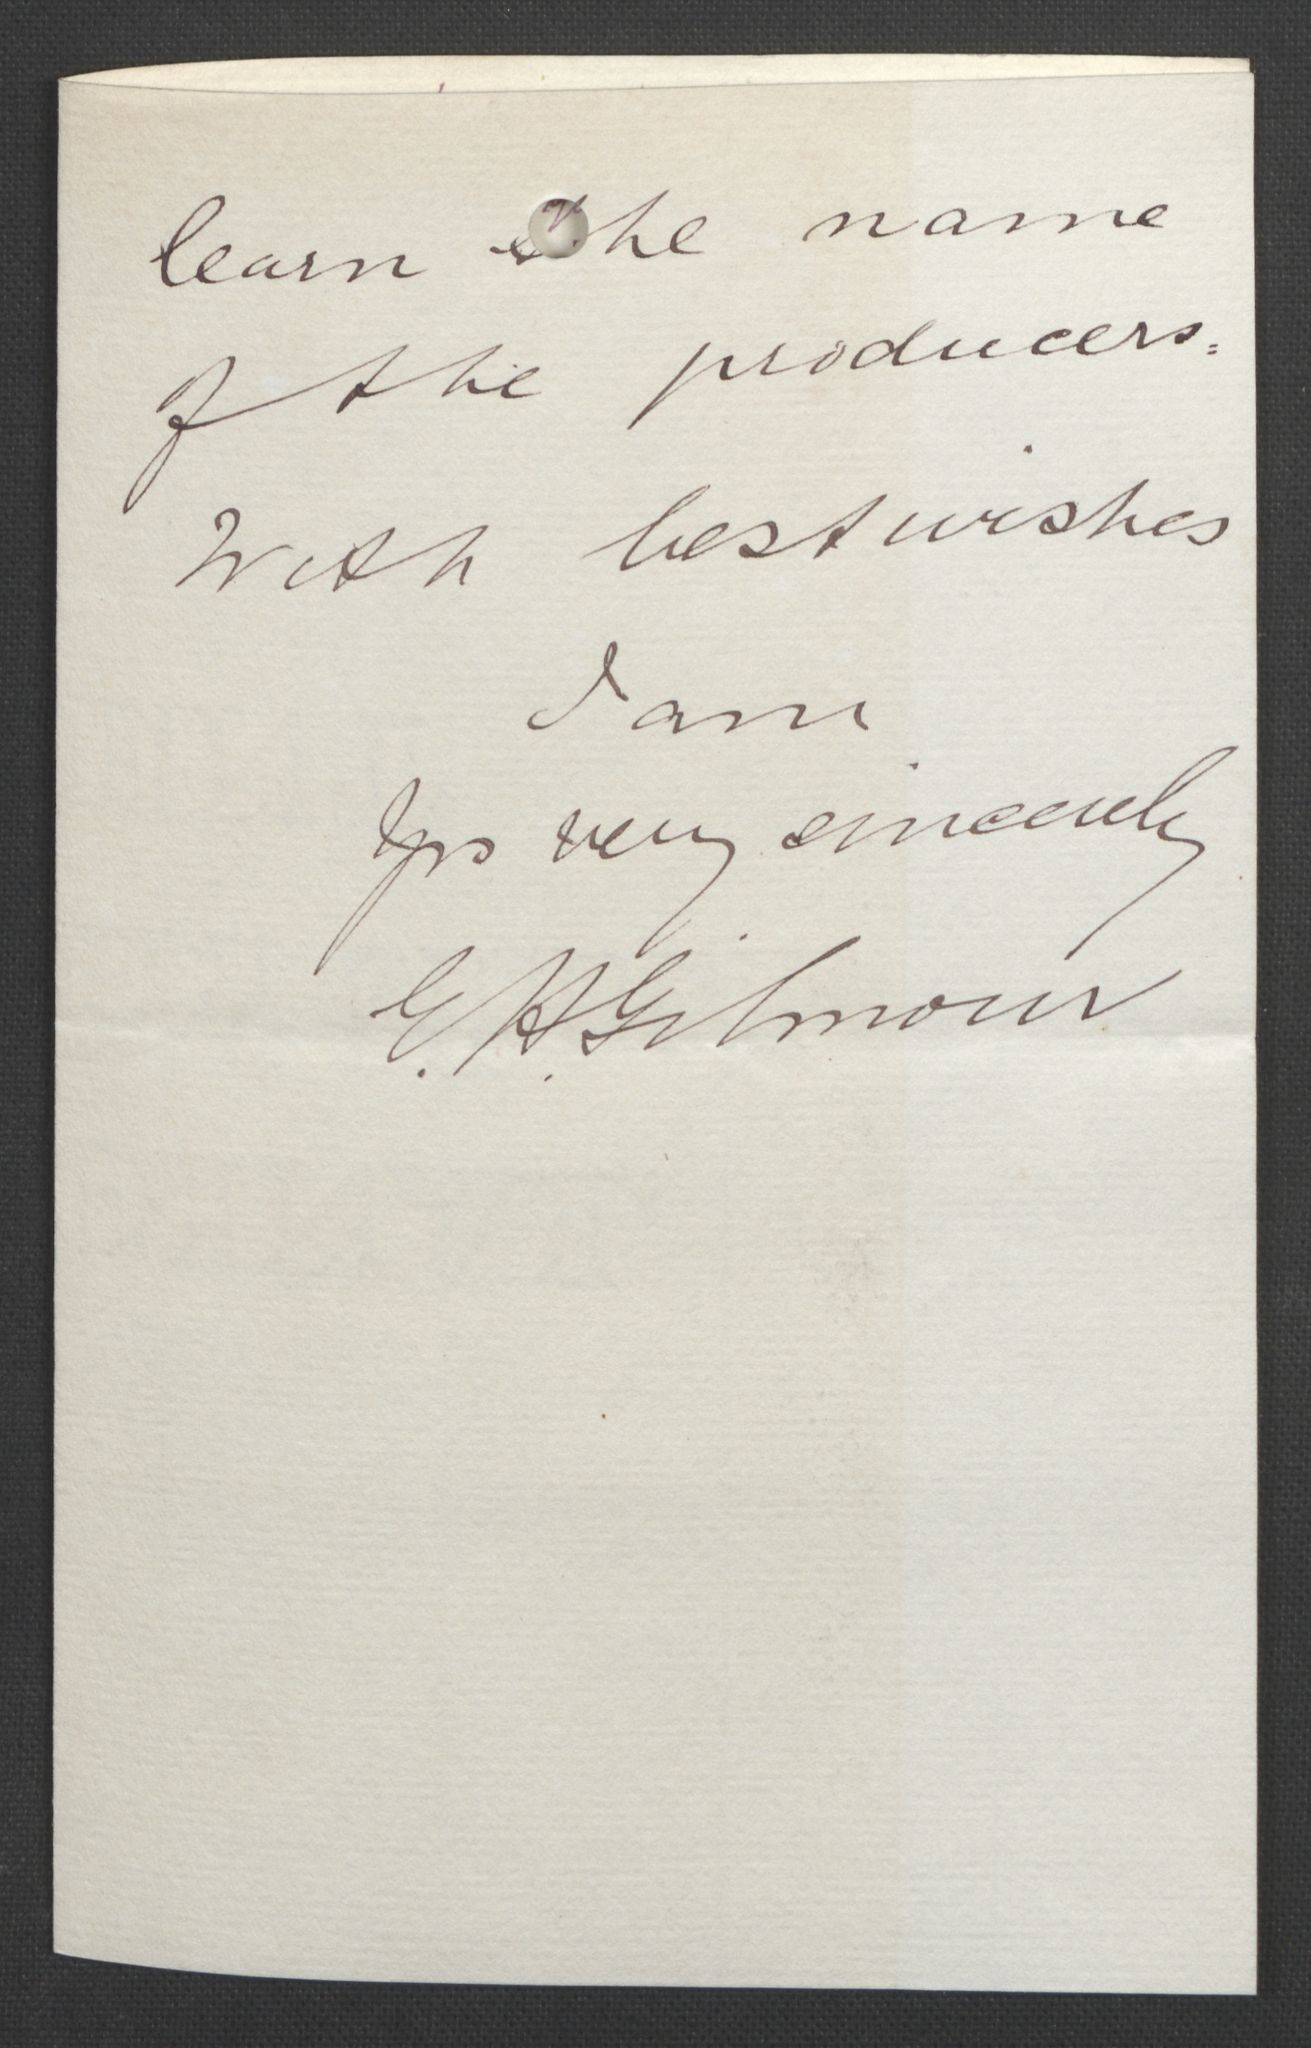 learn the name
of the producers.
With best wishes
I am
Yrs very sincerely
G. H. Gilmour